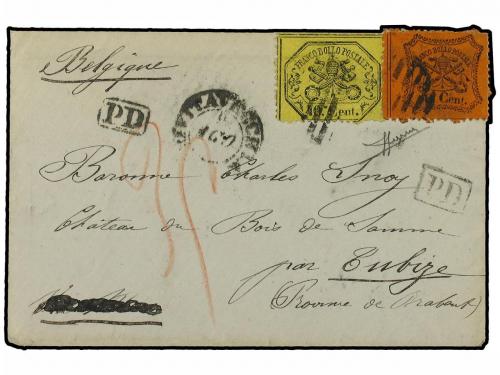 Belgique
FRANCO BOLLO POSTALE
40 Cent.
FRANCO BOLLO POSTALE
Cent.
PD
PD
Baronne Charles Snoy
Château du Bois de Samme
par Tubize
(Province de Brabant)